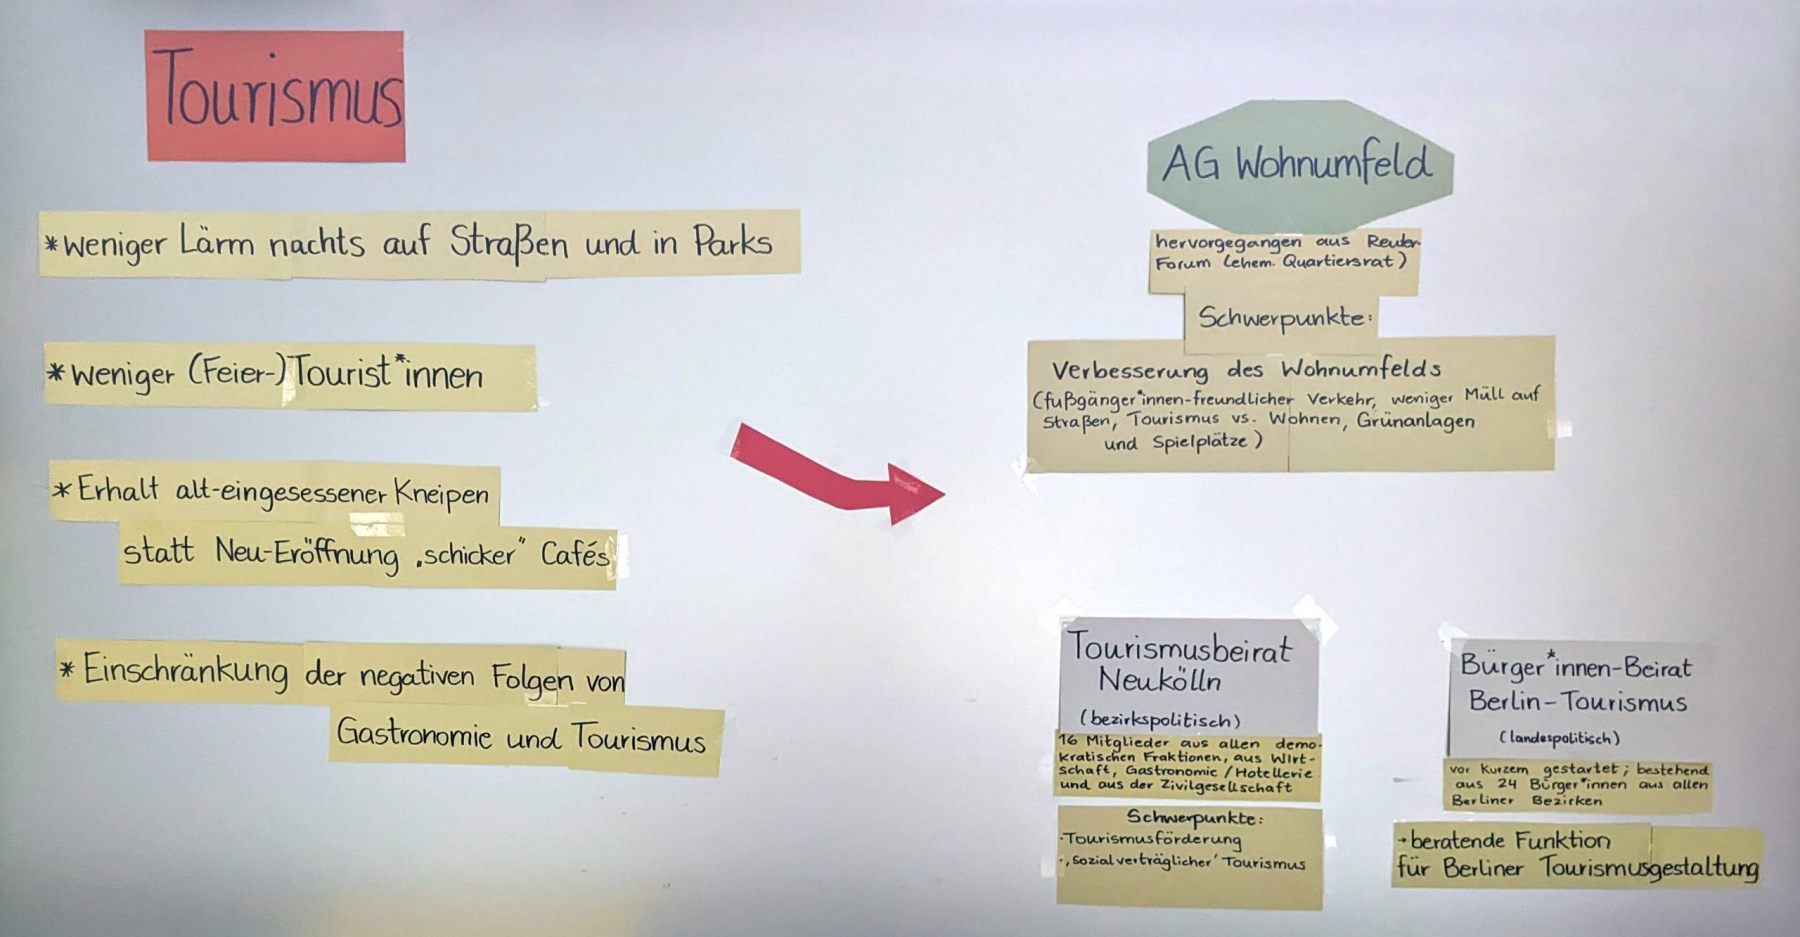 Tourismus
*weniger Lärm nachts auf Straßen und in Parks
*weniger (Feier-)Tourist*innen
*Erhalt alt-eingesessener Kneipen
statt Neu-Eröffnung „schicker" Cafés
*Einschränkung der negativen Folgen von
Gastronomie und Tourismus
AG Wohnumfeld
hervorgegangen aus Reuter-
Forum (ehem. Quartiersrat)
Schwerpunkte:
Verbesserung des Wohnumfelds
(fußgänger*innen-freundlicher Verkehr, weniger Müll auf
Straßen, Tourismus vs. Wohnen, Grünanlagen
und Spielplätze)
Tourismusbeirat
Neukölln
(bezirkspolitisch)
16 Mitglieder aus allen demo-
kratischen Fraktionen, aus Wirt-
schaft, Gastronomie/Hotellerie
und aus der Zivilgesellschaft
Schwerpunkte:
·Tourismusförderung
·‚sozialverträglicher' Tourismus
Bürger*innen-Beirat
Berlin-Tourismus
(landespolitisch)
vor Kurzem gestartet; bestehend
aus 24 Bürger*innen aus allen
Berliner Bezirken
→beratende Funktion
für Berliner Tourismusgestaltung